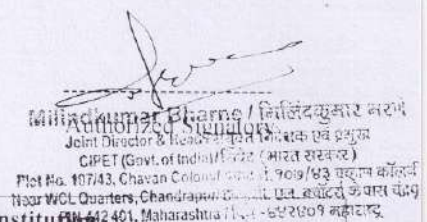 Milindkumar Bharne / मिलिंदकुमार भरणे
Authorized Signatory
Joint Director & Head / संयुक्त निदेशक एवं प्रमुख
CIPET (Govt. of India) / सिपेट (भारत सरकार)
Plot No. 107/43, Chavan Colony १०७/४३ चव्हाण कॉलनी
Near WCL Quarters, Chandrapur एल. क्वॉर्टर्स के पास
442 401, Maharashtra ४४२४०१ महाराष्ट्र